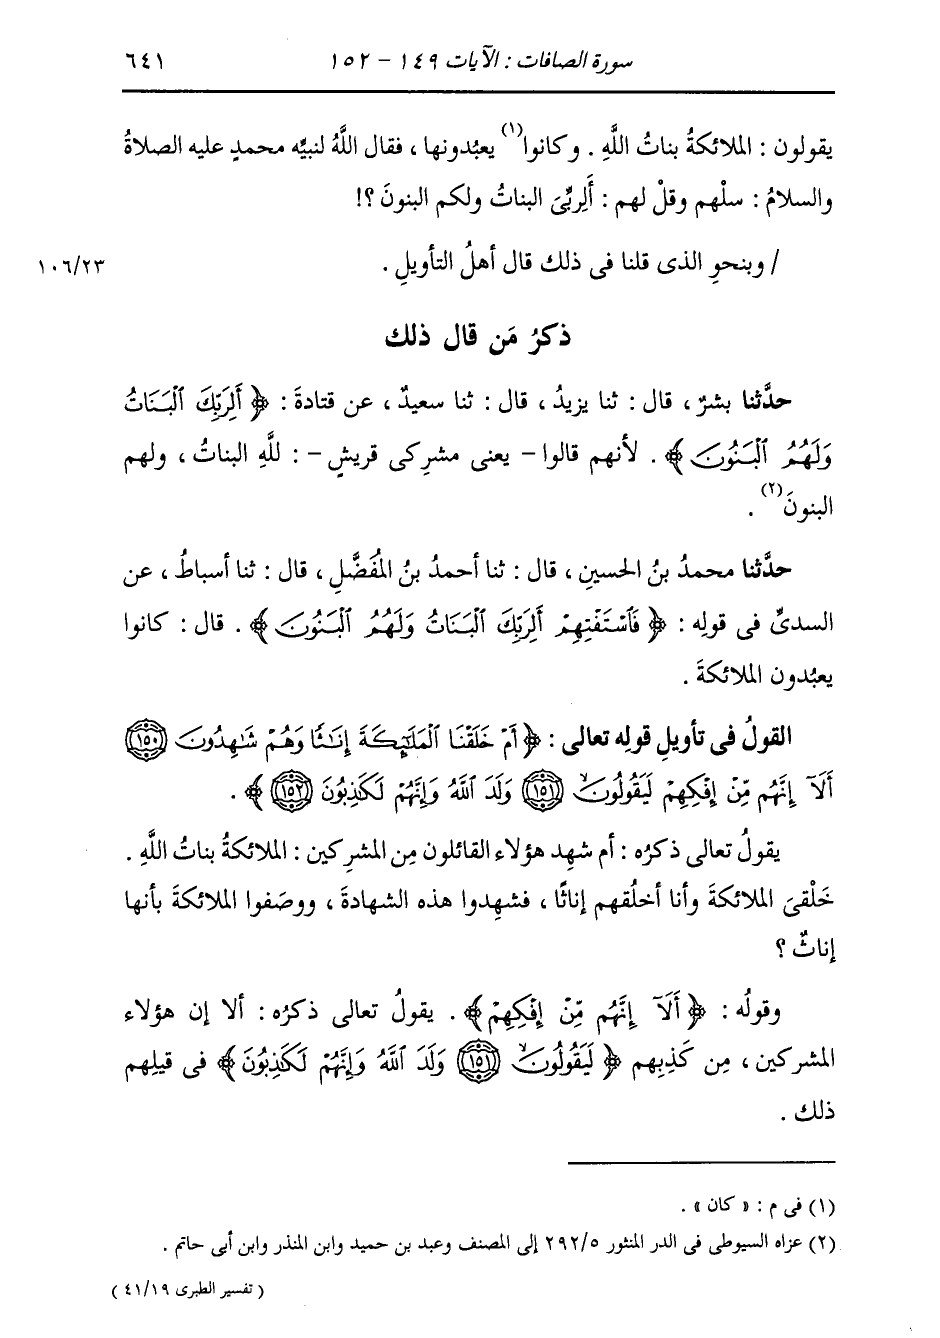 سورة الصافات : الآيات ١٤٩ - ١٥٢ ٦٤١
يقولون : الملائكةُ بناتُ اللَّهِ . وكانوا(١) يعبُدونها ، فقال اللَّهُ لنبيِّه محمدٍ عليه الصلاةُ
والسلامُ : سلْهم وقلْ لهم : أَلِربِّىَ البناتُ ولكم البنونَ ؟!
/ وبنحوِ الذى قلنا فى ذلك قال أهلُ التأويلِ . ١٠٦/٢٣
ذكرُ مَن قال ذلك
حدَّثنا بشرٌ ، قال : ثنا يزيدُ ، قال : ثنا سعيدٌ ، عن قتادةَ : ﴿ أَلِرَبِّكَ ٱلْبَنَاتُ
وَلَهُمُ ٱلْبَنُونَ ﴾ . لأنهم قالوا - يعنى مشركى قريشٍ - : للَّهِ البناتُ ، ولهم
البنونَ(٢) .
حدَّثنا محمدُ بنُ الحسينِ ، قال : ثنا أحمدُ بنُ المُفَضَّلِ ، قال : ثنا أسباطُ ، عن
السدىِّ فى قولِه : ﴿ فَٱسْتَفْتِهِمْ أَلِرَبِّكَ ٱلْبَنَاتُ وَلَهُمُ ٱلْبَنُونَ ﴾ . قال : كانوا
يعبُدون الملائكةَ .
القولُ فى تأويلِ قولِه تعالى : ﴿ أَمْ خَلَقْنَا ٱلْمَلَٰٓئِكَةَ إِنَٰثًا وَهُمْ شَٰهِدُونَ ١٥٠
أَلَآ إِنَّهُم مِّنْ إِفْكِهِمْ لَيَقُولُونَ ١٥١ وَلَدَ ٱللَّهُ وَإِنَّهُمْ لَكَٰذِبُونَ ١٥٢ ﴾ .
يقولُ تعالى ذكرُه : أم شهِد هؤلاء القائلون مِن المشركين : الملائكةُ بناتُ اللَّهِ .
خَلْقىَ الملائكةَ وأنا أخلُقهم إناثًا ، فشهِدوا هذه الشهادةَ ، ووصَفوا الملائكةَ بأنها
إناثٌ ؟
وقولُه : ﴿ أَلَآ إِنَّهُم مِّنْ إِفْكِهِمْ ﴾ . يقولُ تعالى ذكرُه : ألا إن هؤلاء
المشركين ، مِن كَذِبِهم ﴿ لَيَقُولُونَ ١٥١ وَلَدَ ٱللَّهُ وَإِنَّهُمْ لَكَٰذِبُونَ ﴾ فى قيلِهم
ذلك .
(١) فى م : « كان » .
(٢) عزاه السيوطى فى الدر المنثور ٢٩٢/٥ إلى المصنف وعبد بن حميد وابن المنذر وابن أبى حاتم .
( تفسير الطبرى ٤١/١٩ )